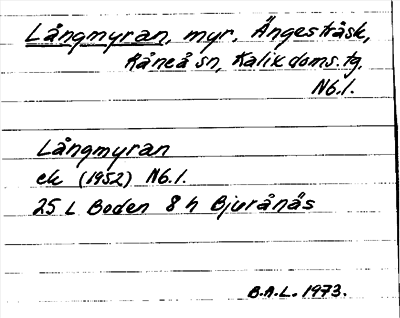 Långmyran, myr, Ängesträsk,
Råneå sn, Kalix doms. tg.
Nb.l.
Långmyran
ek (1952) Nb.l.
25 L Boden 8 h Bjurånäs
B.A.L. 1973.